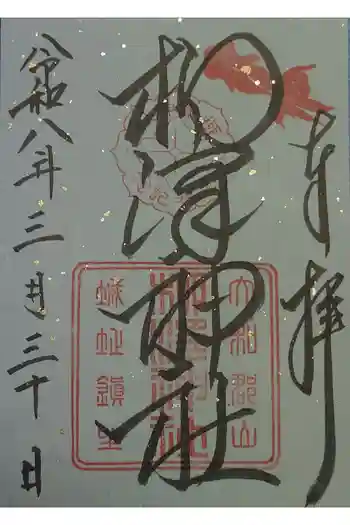 奉拝
柳澤神社
大和郡山
城址鎮座
令和八年三月三十日